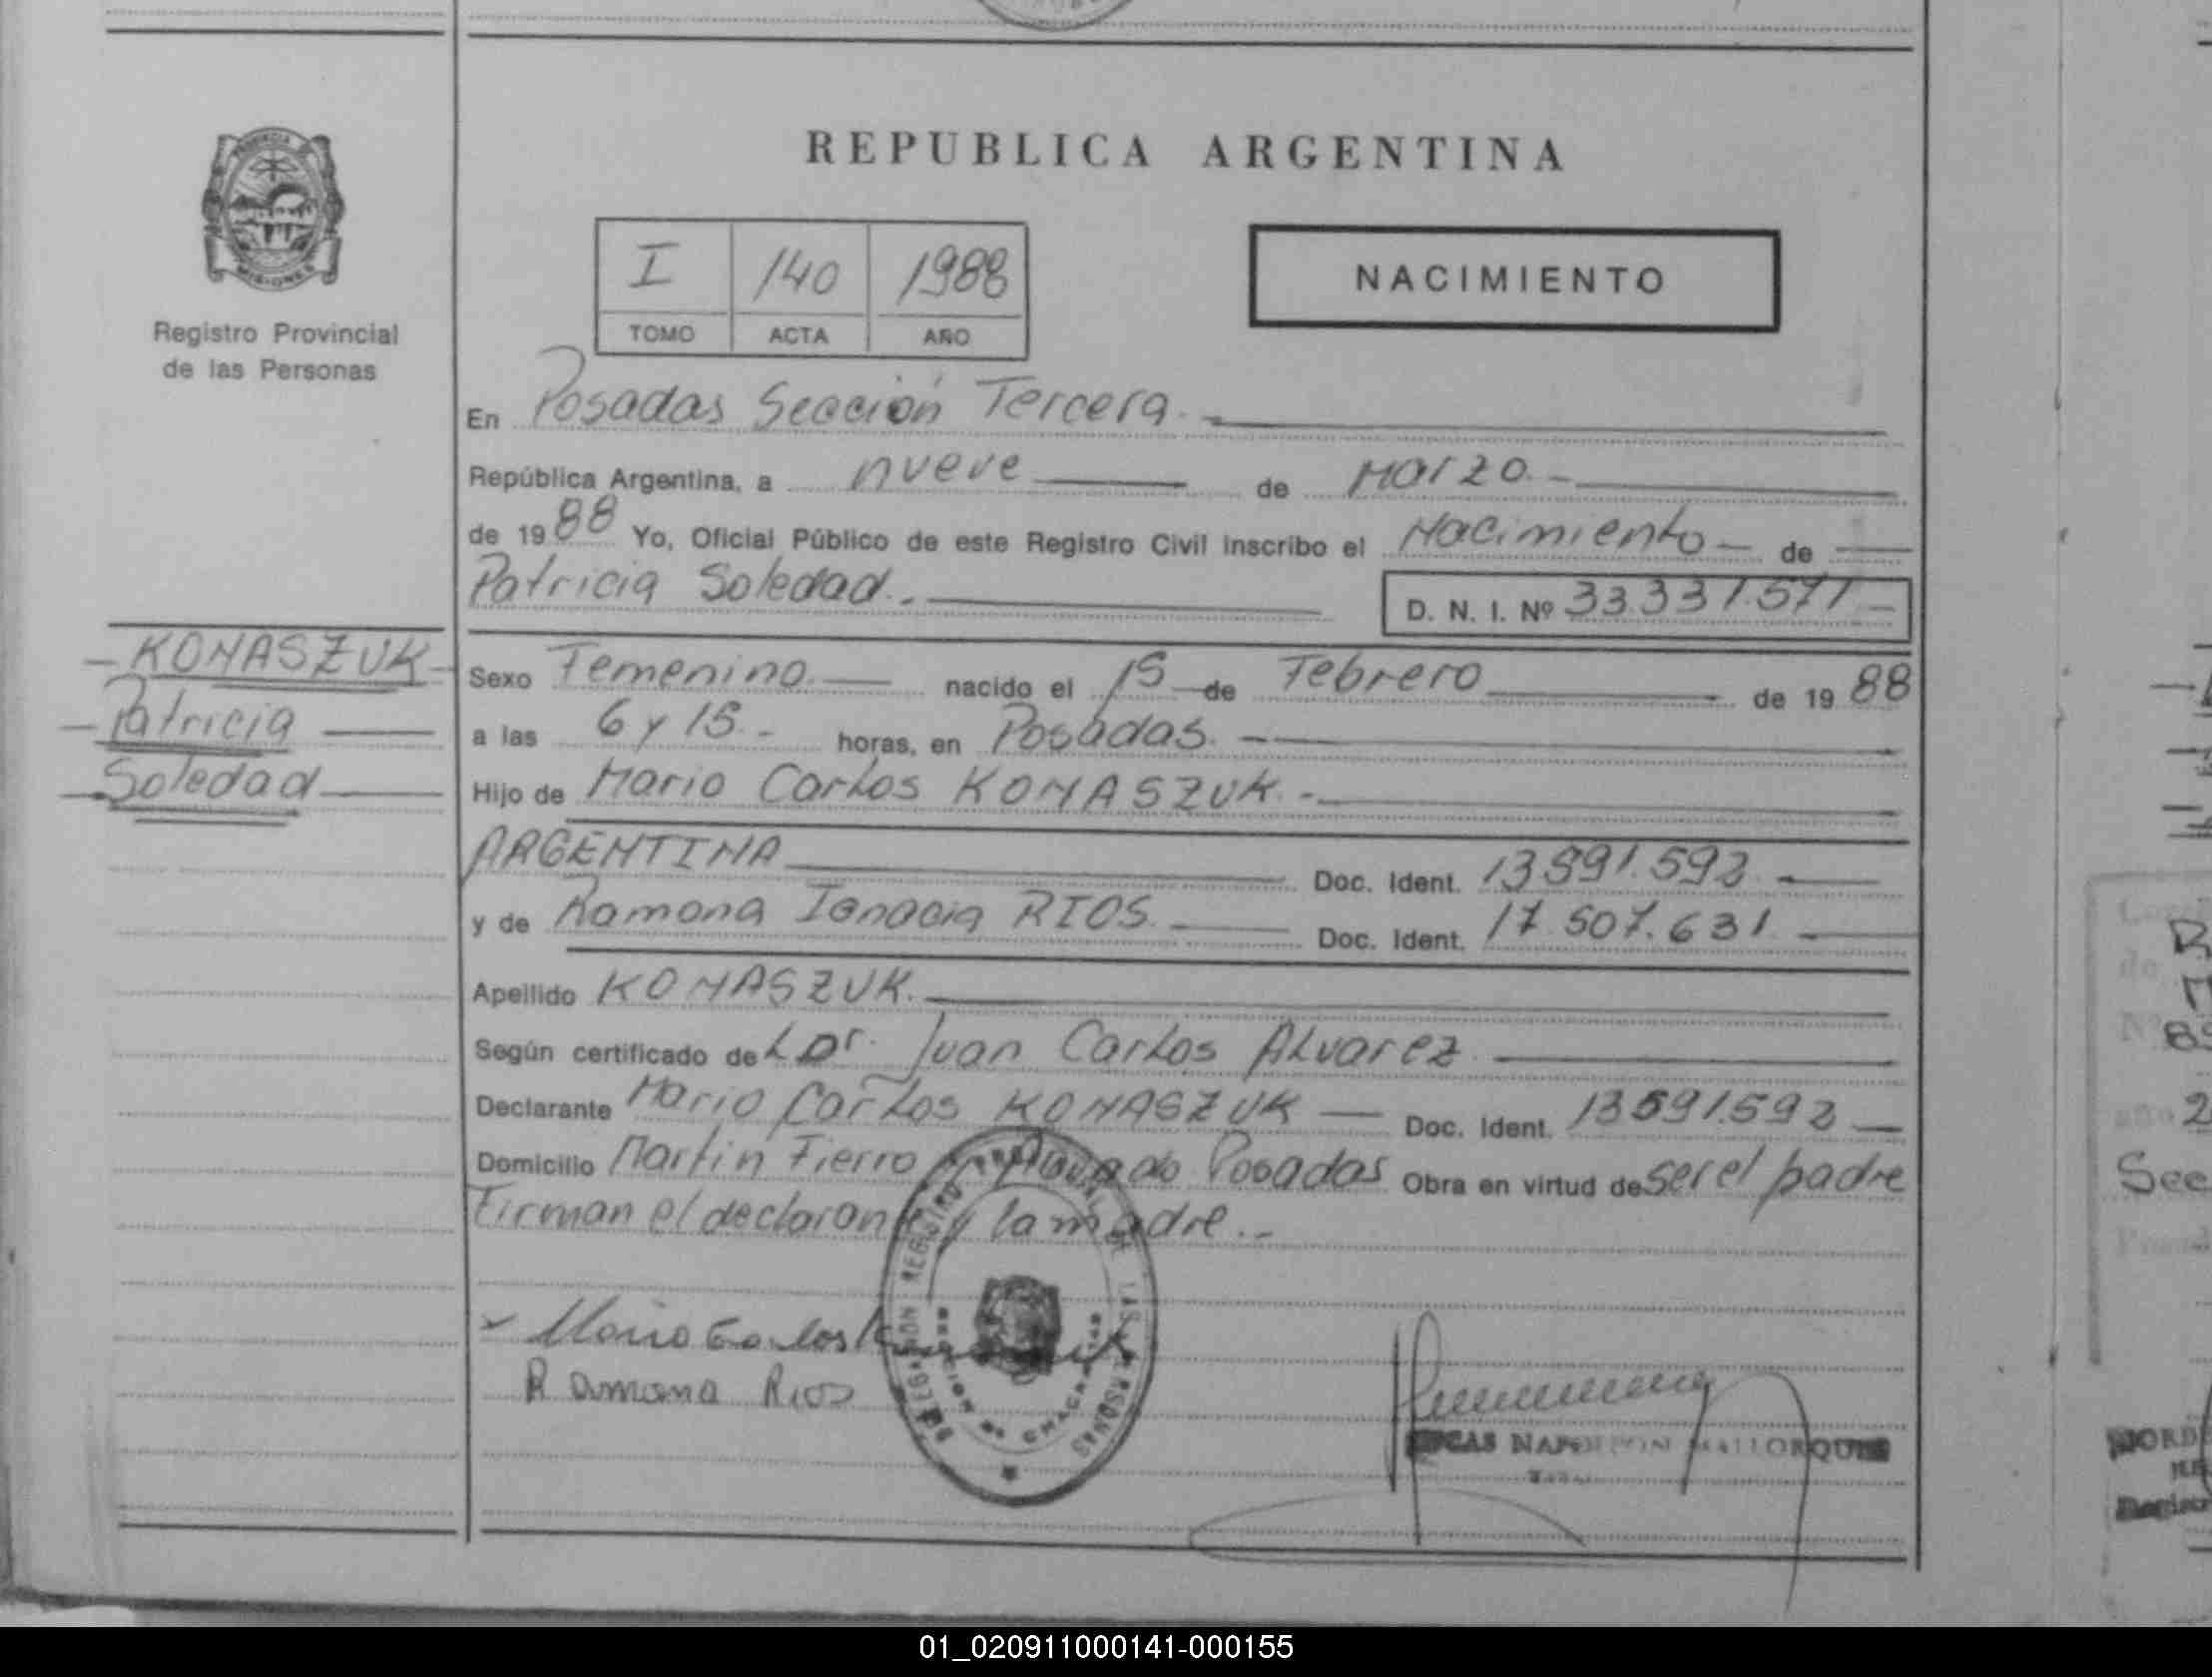 REPUBLICA ARGENTINA
PROVINCIA
MISIONES
Registro Provincial
de las Personas
I 140 1988
TOMO ACTA AÑO
NACIMIENTO
En Posadas Sección Tercera.
República Argentina, a nueve de Marzo.
de 1988 Yo, Oficial Público de este Registro Civil inscribo el Nacimiento de
Patricia Soledad. D. N. I. Nº 33.331.571
KONASZUK
Patricia
Soledad
Sexo Femenino nacido el 15 de Febrero de 1988
a las 6 y 15 horas, en Posadas.
Hijo de Mario Carlos KONASZUK.
ARGENTINA Doc. Ident. 13591.592
y de Ramona Ignacia RIOS. Doc. Ident. 17.507.631
Apellido KONASZUK.
Según certificado del Dr. Juan Carlos Alvarez
Declarante Mario Carlos KONASZUK Doc. Ident. 13591.592
Domicilio Martin Fierro Posadas Obra en virtud de ser el padre
Firman el declarante y la madre.
Mario Carlos
Ramona Rios
REGISTRO
LAS PERSONAS
NAPOLEON MALLORQUIN
01_020911000141-000155